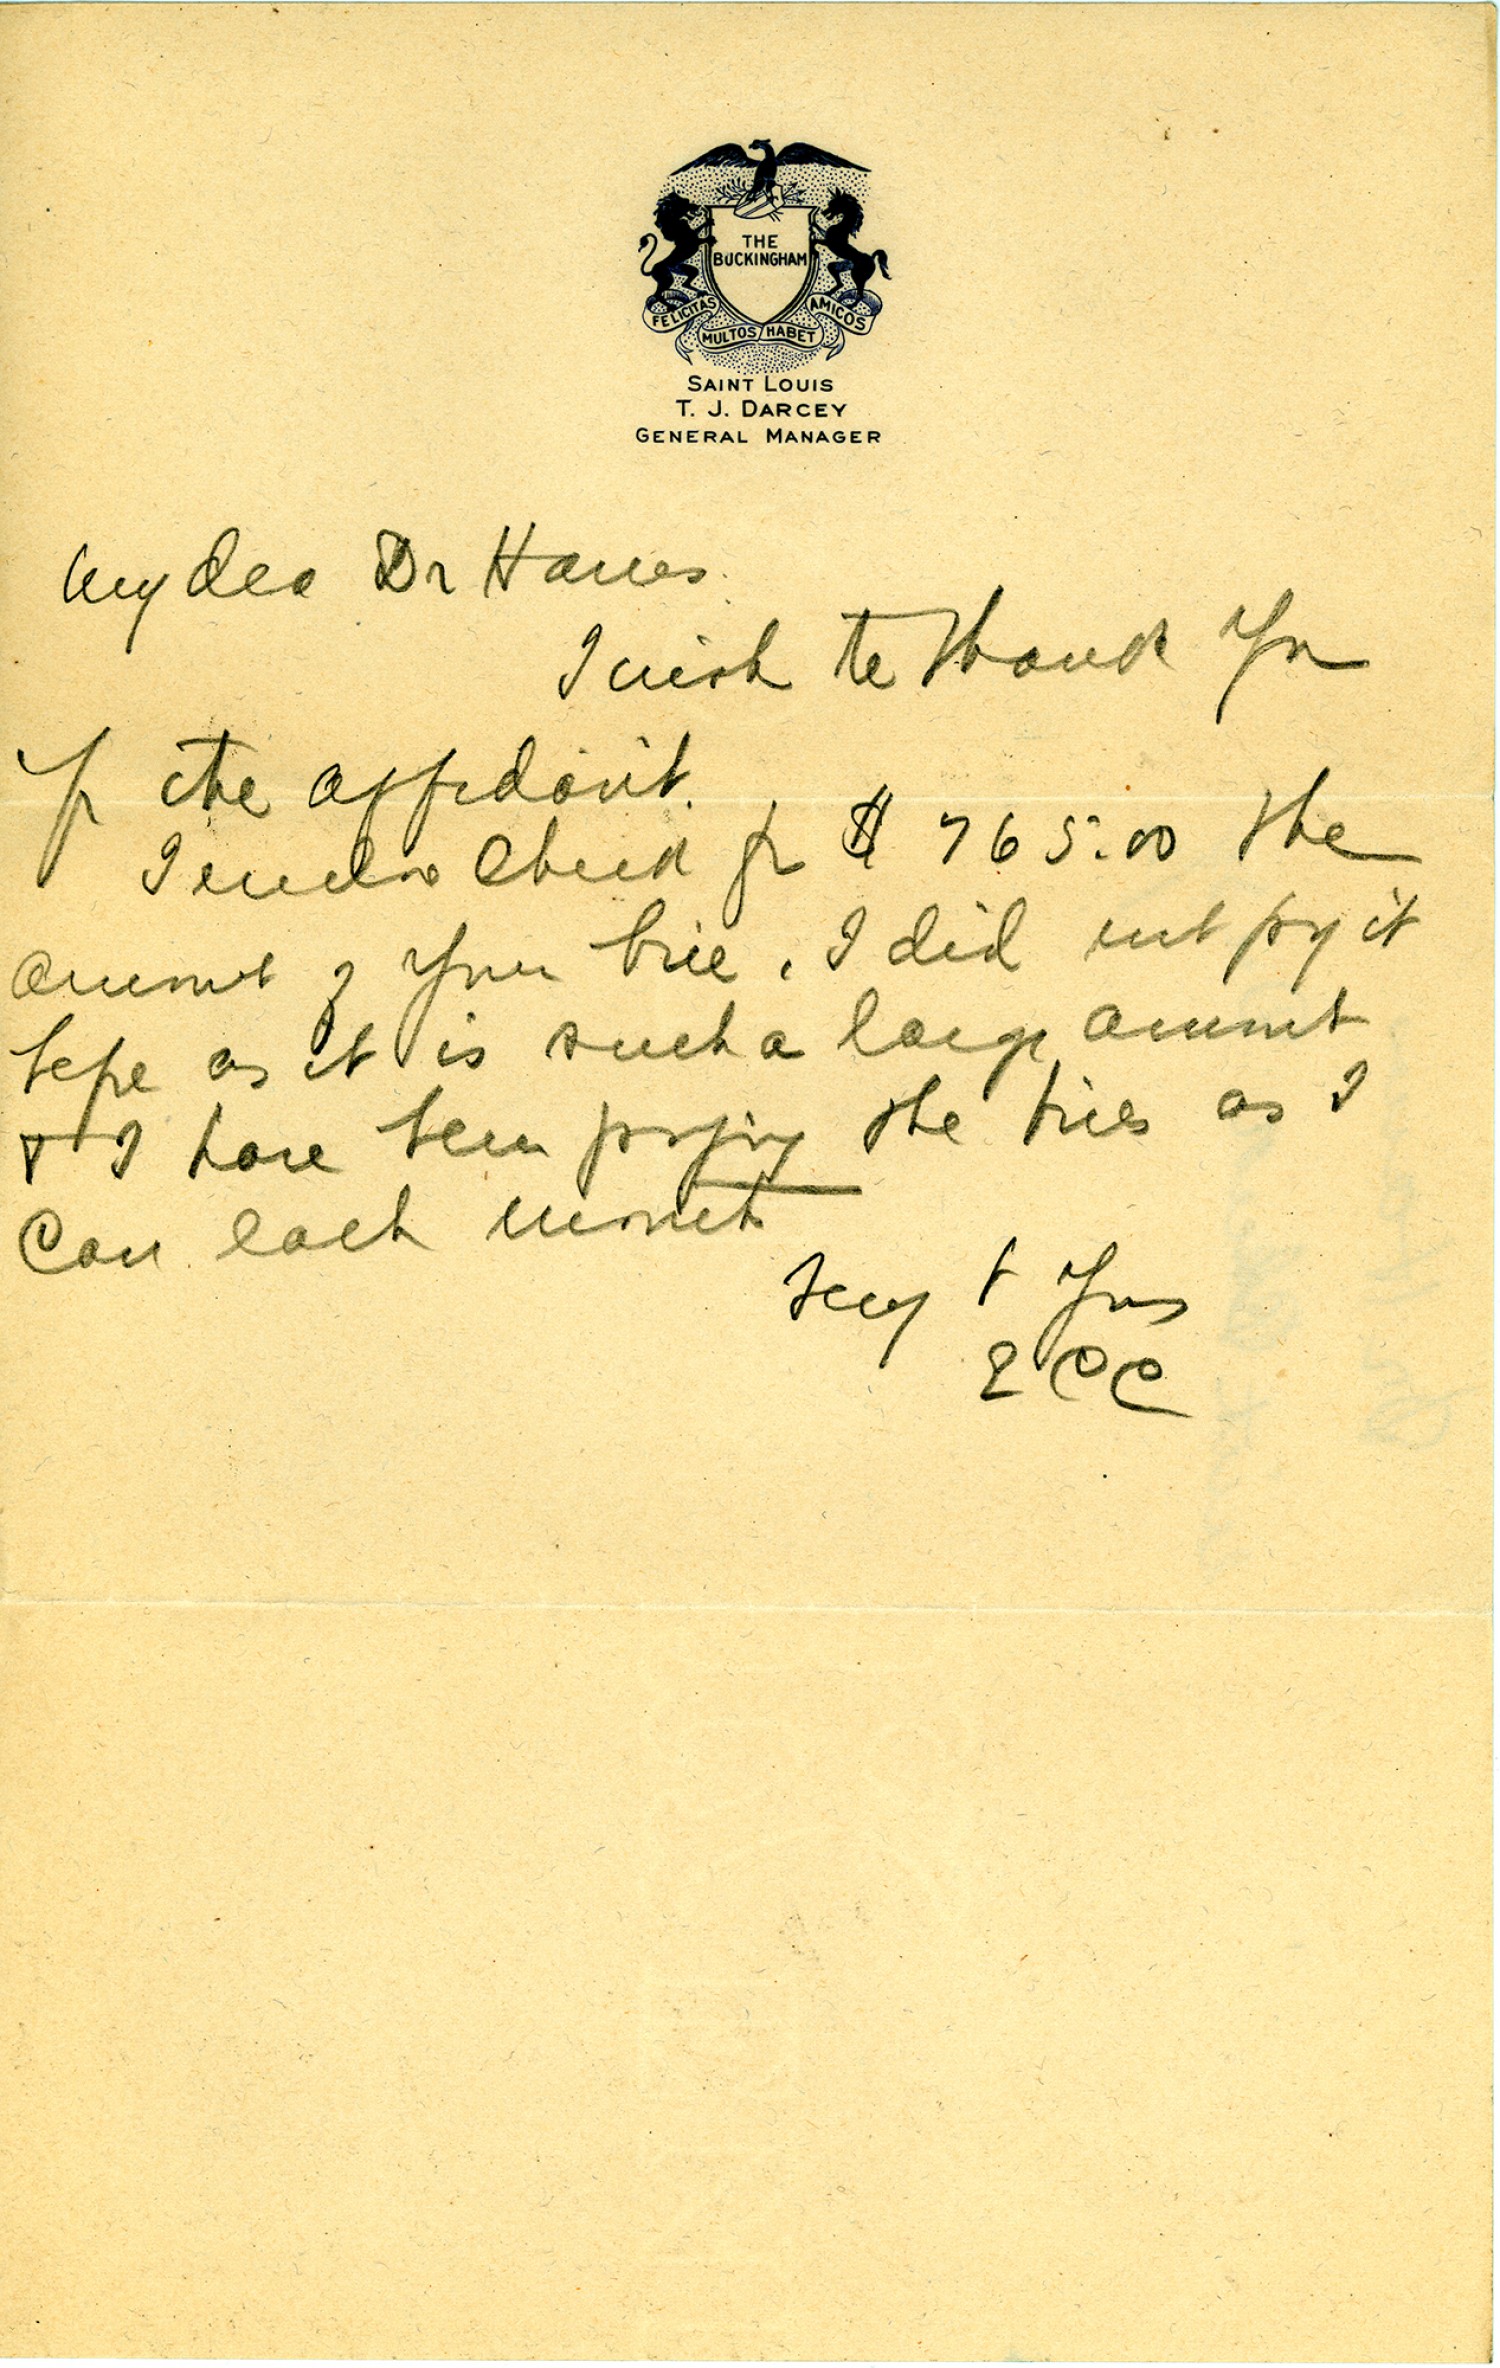 THE
BUCKINGHAM
FELICITAS MULTOS HABET AMICOS
SAINT LOUIS
T. J. DARCEY
GENERAL MANAGER
My dear Dr
I wish to thank you
for the affidavit.
I enclose check for $765.00 the
amount of your bill. I did not pay it
before as it is such a large amount
& I have been paying the bills as I
can each month
Very t Yrs
ECC